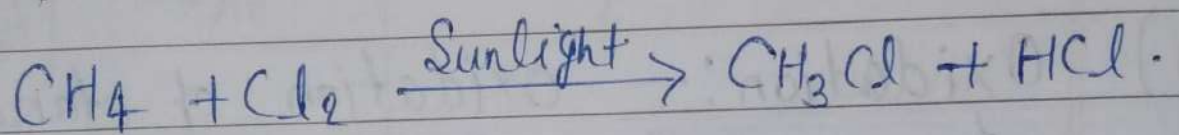 CH4 + Cl2 Sunlight → CH3Cl + HCl.